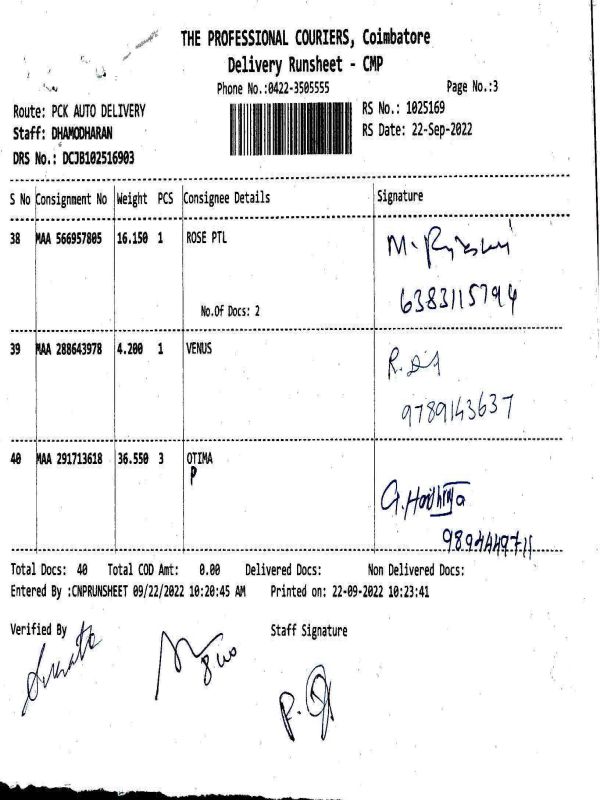 THE PROFESSIONAL COURIERS, Coimbatore
Delivery Runsheet - CMP
Phone No.:0422-3505555 Page No.:3
Route: PCK AUTO DELIVERY RS No.: 1025169
Staff: DHAMODHARAN RS Date: 22-Sep-2022
DRS No.: DCJB102516903
S No Consignment No Weight PCS Consignee Details Signature
38 MAA 566957805 16.150 1 ROSE PTL
6383115794
No.Of Docs: 2
39 MAA 288643978 4.200 1 VENUS
9789143637
40 MAA 291713618 36.550 3 OTIMA
P
9894449711
Total Docs: 40 Total COD Amt: 0.00 Delivered Docs: Non Delivered Docs:
Entered By :CNPRUNSHEET 09/22/2022 10:20:45 AM Printed on: 22-09-2022 10:23:41
Verified By Staff Signature